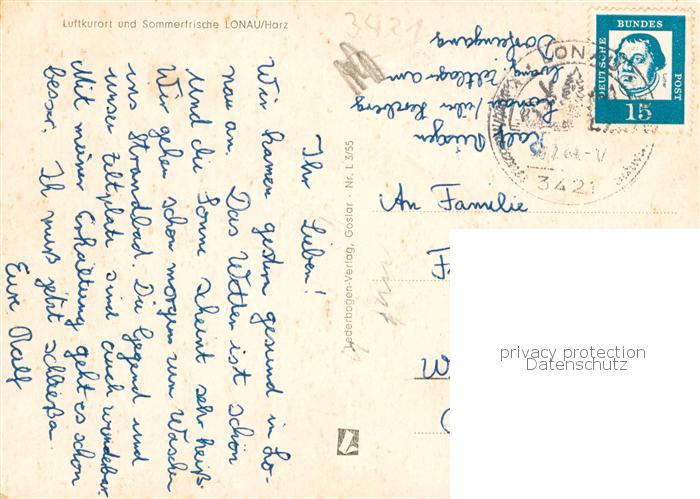 Luftkurort und Sommerfrische LONAU/Harz
3421
Ihr Lieben!
Wir kamen gestern gesund in Lo-
nau an. Das Wetter ist schön
und die Sonne scheint sehr heiß.
Wir gehen schon morgen zum Waschen
ins Strandbad. Die Gegend und
unser Zeltplatz sind auch wunderbar.
Mit meiner Erkältung geht es schon
besser. Ich muß jetzt schließen.
Eure Ralf
Lederbogen-Verlag, Goslar Nr. L3/55
Ralf
Lonau / über Herzberg
evang. Zeltlager am
Dorfeingang
LON
3421
DEUTSCHE
BUNDES
POST
15
An Familie
F
W
privacy protection
Datenschutz